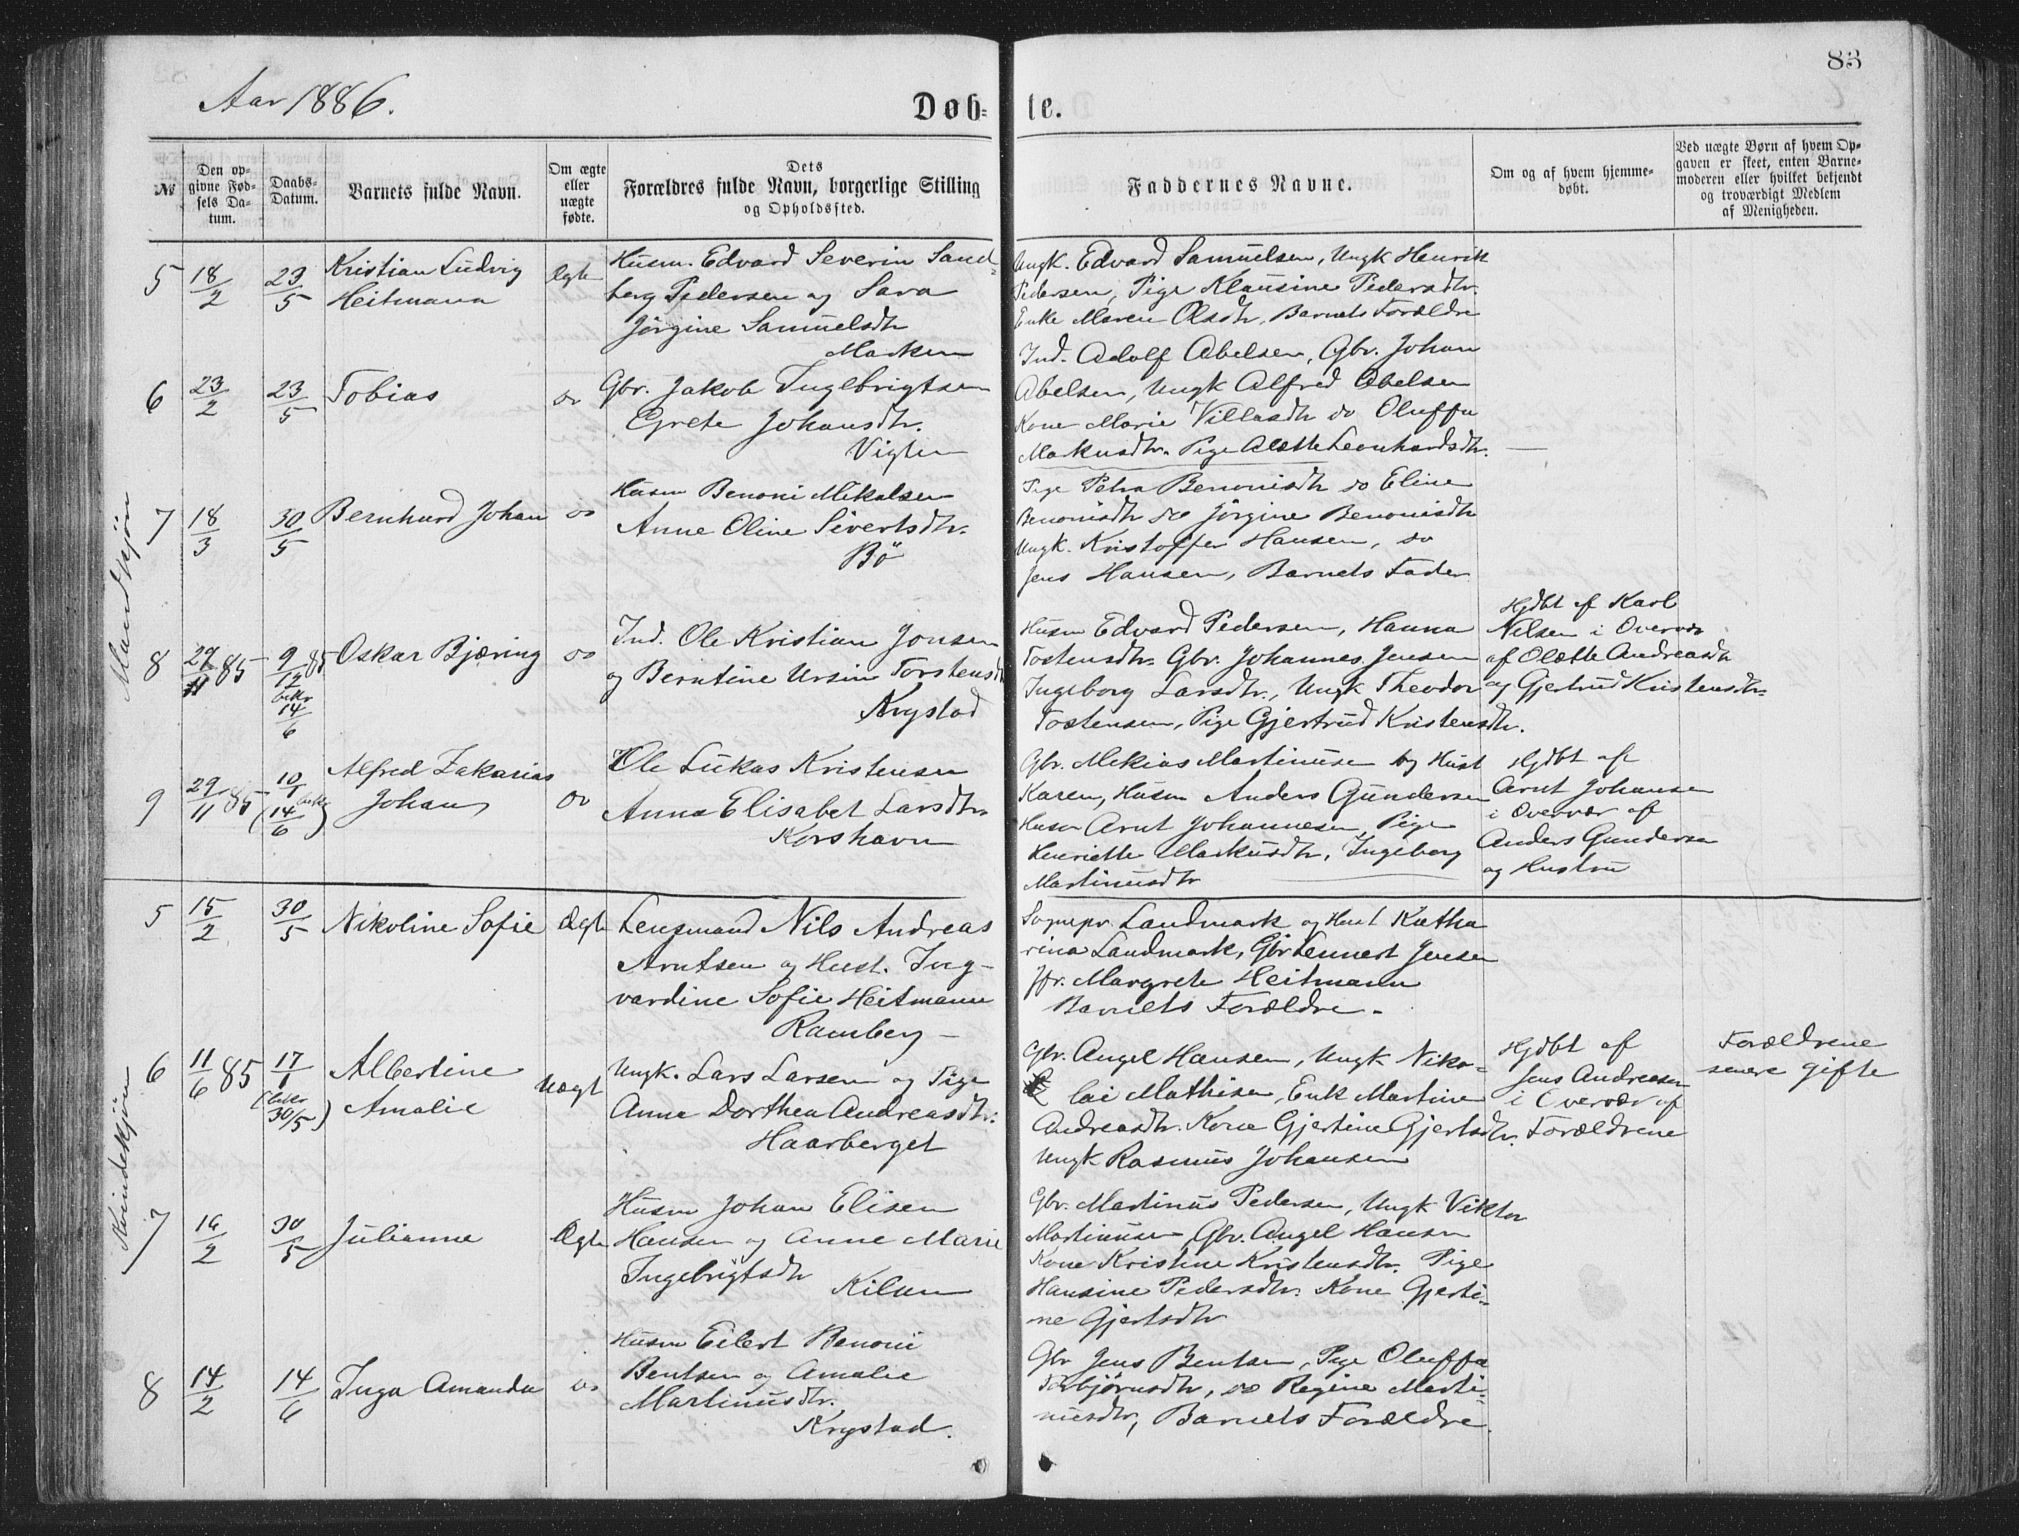 83
Aar 1886.
Døb-
te.
№
Den op-
givne Fød-
sels Da-
tum.
Daabs-
Datum.
Barnets fulde Navn.
Om ægte
eller
uægte
fødte.
Dets
Forældres fulde Navn, borgerlige Stilling
og Opholdssted.
Faddernes Navne.
Om og af hvem hjemme-
døbt.
Ved uægte Børn af hvem Op-
gaven er skeet, enten Barne-
moderen eller hvilket bekjendt
og troværdigt Medlem
af Menigheden.
Mandkjøn
5
18/2
23/5
Kristian Ludvig
Heitmann
Ægte
Husm. Edvard Severin Sand-
berg Pedersen og Sara
Jørgine Samuelsdtr
Marken
Ungk. Edvard Samuelsen, Ungk Henrik
Pedersen, Pige Klausine Pedersdtr.
Enke Maren Olsdtr, Barnets Forældre
6
23/2
23/5
Tobias
do
Gbr. Jakob Ingebrigtsen
Grete Johansdtr.
Vigten
Ind. Adolf Abelsen, Gbr. Johan
Abelsen, Ungk Alfred Abelsen
Kone Marie Villasdtr do Oluffa
Markusdtr. Pige Alette Leonhardsdtr.
—
7
18/3
30/5
Bernhard Johan
do
Husm Benoni Mikalsen
Anne Oline Sivertsdtr.
Bö
Pige Petra Benonisdtr do Eline
Benonisdtr do Jörgine Benonisdtr
Ungk. Kristoffer Hansen, do
Jens Hansen, Barnets Fader
8
29/11 85
9/12 85
bekr
14/6
Oskar Bjæring
do
Ind. Ole Kristian Jonsen
og Berntine Ursin Torstensdtr
Krystad
Husm Edvard Pedersen, Hanna
Tostensdtr. Gbr. Johannes Jensen
Ingeborg Larsdtr., Ungk Theodor
Tostensen, Pige Gjertrud Kristensdtr.
Hjdbt af Karl
Nilsen i Overvær
af Olætte Andreasdtr
og Gjertrud Kristensdtr.
9
29/11 85
10/1
(bekr
14/6)
Alfred Zakarias
Johan
do
Ole Lukas Kristensen
Anna Elisabet Larsdtr
Korshavn
Gbr. Mekias Martinusen og Hust
Karen, Husm Anders Gundersen
Husm Arnt Johannesen, Pige
Henriette Markusdtr, Ingeborg
Martinusdtr
Hjdbt af
Arnt Johansen
i Overvær af
Anders Gundersen
og Hustru
Kvindekjøn
5
15/2
30/5
Nikoline Sofie
Ægte
Lensmand Nils Andreas
Arntsen og Hust. Ing-
vardine Sofie Heitmann
Ramberg —
Sognepr. Landmark og Hust Katha
rina Landmark, Gbr Lennert Jensen
Jfr. Margrete Heitmann
Barnets Forældre.
6
11/6 85
17/1
(bekr
30/5)
Albertine
Amalie
Uægt
Ungk. Lars Larsen og Pige
Anne Dorthea Andreasdtr.
Haarberget
Gbr. Angel Hansen, Ungk Niko-
lai Mathisen, Enk Martine
Andreasdtr. Kone Gjertine Gjertsdtr.
Ungk Rasmus Johansen
Hjdbt af
Jens Andreasen
i Overvær af
Forældrene
Forældrene
senere gifte
7
16/2
30/5
Julianne
Ægte
Husm Johan Elisen
Hansen og Anne Marie
Ingebrigtsdtr
Kilan
Gbr. Martinus Pedersen, Ungk Viktor
Martinusen, Gbr. Angel Hansen
Kone Kristine Kristensdtr. Pige
Hansine Pedersdtr. Kone Gjerti-
ne Gjertsdtr
8
14/2
14/6
Inga Amanda
do
Husm Eilert Benoni
Bentsen og Amalie
Martinusdtr.
Krystad.
Gbr Jens Bentsen, Pige Oluffa
Torbjörnsdtr, do Regine Marti-
nusdtr, Barnets Forældre.